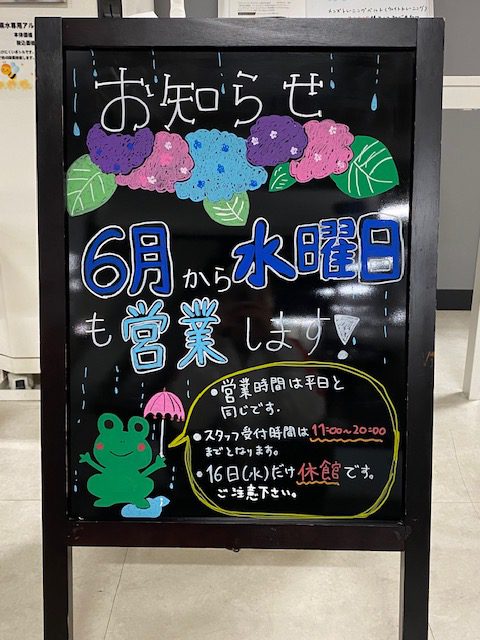 お知らせ
6月から水曜日
も営業します!
・営業時間は平日と
同じです。
・スタッフ受付時間は11:00〜20:00
までとなります。
・16日(水)だけ休館です。
ご注意下さい。
本体価格
税込価格